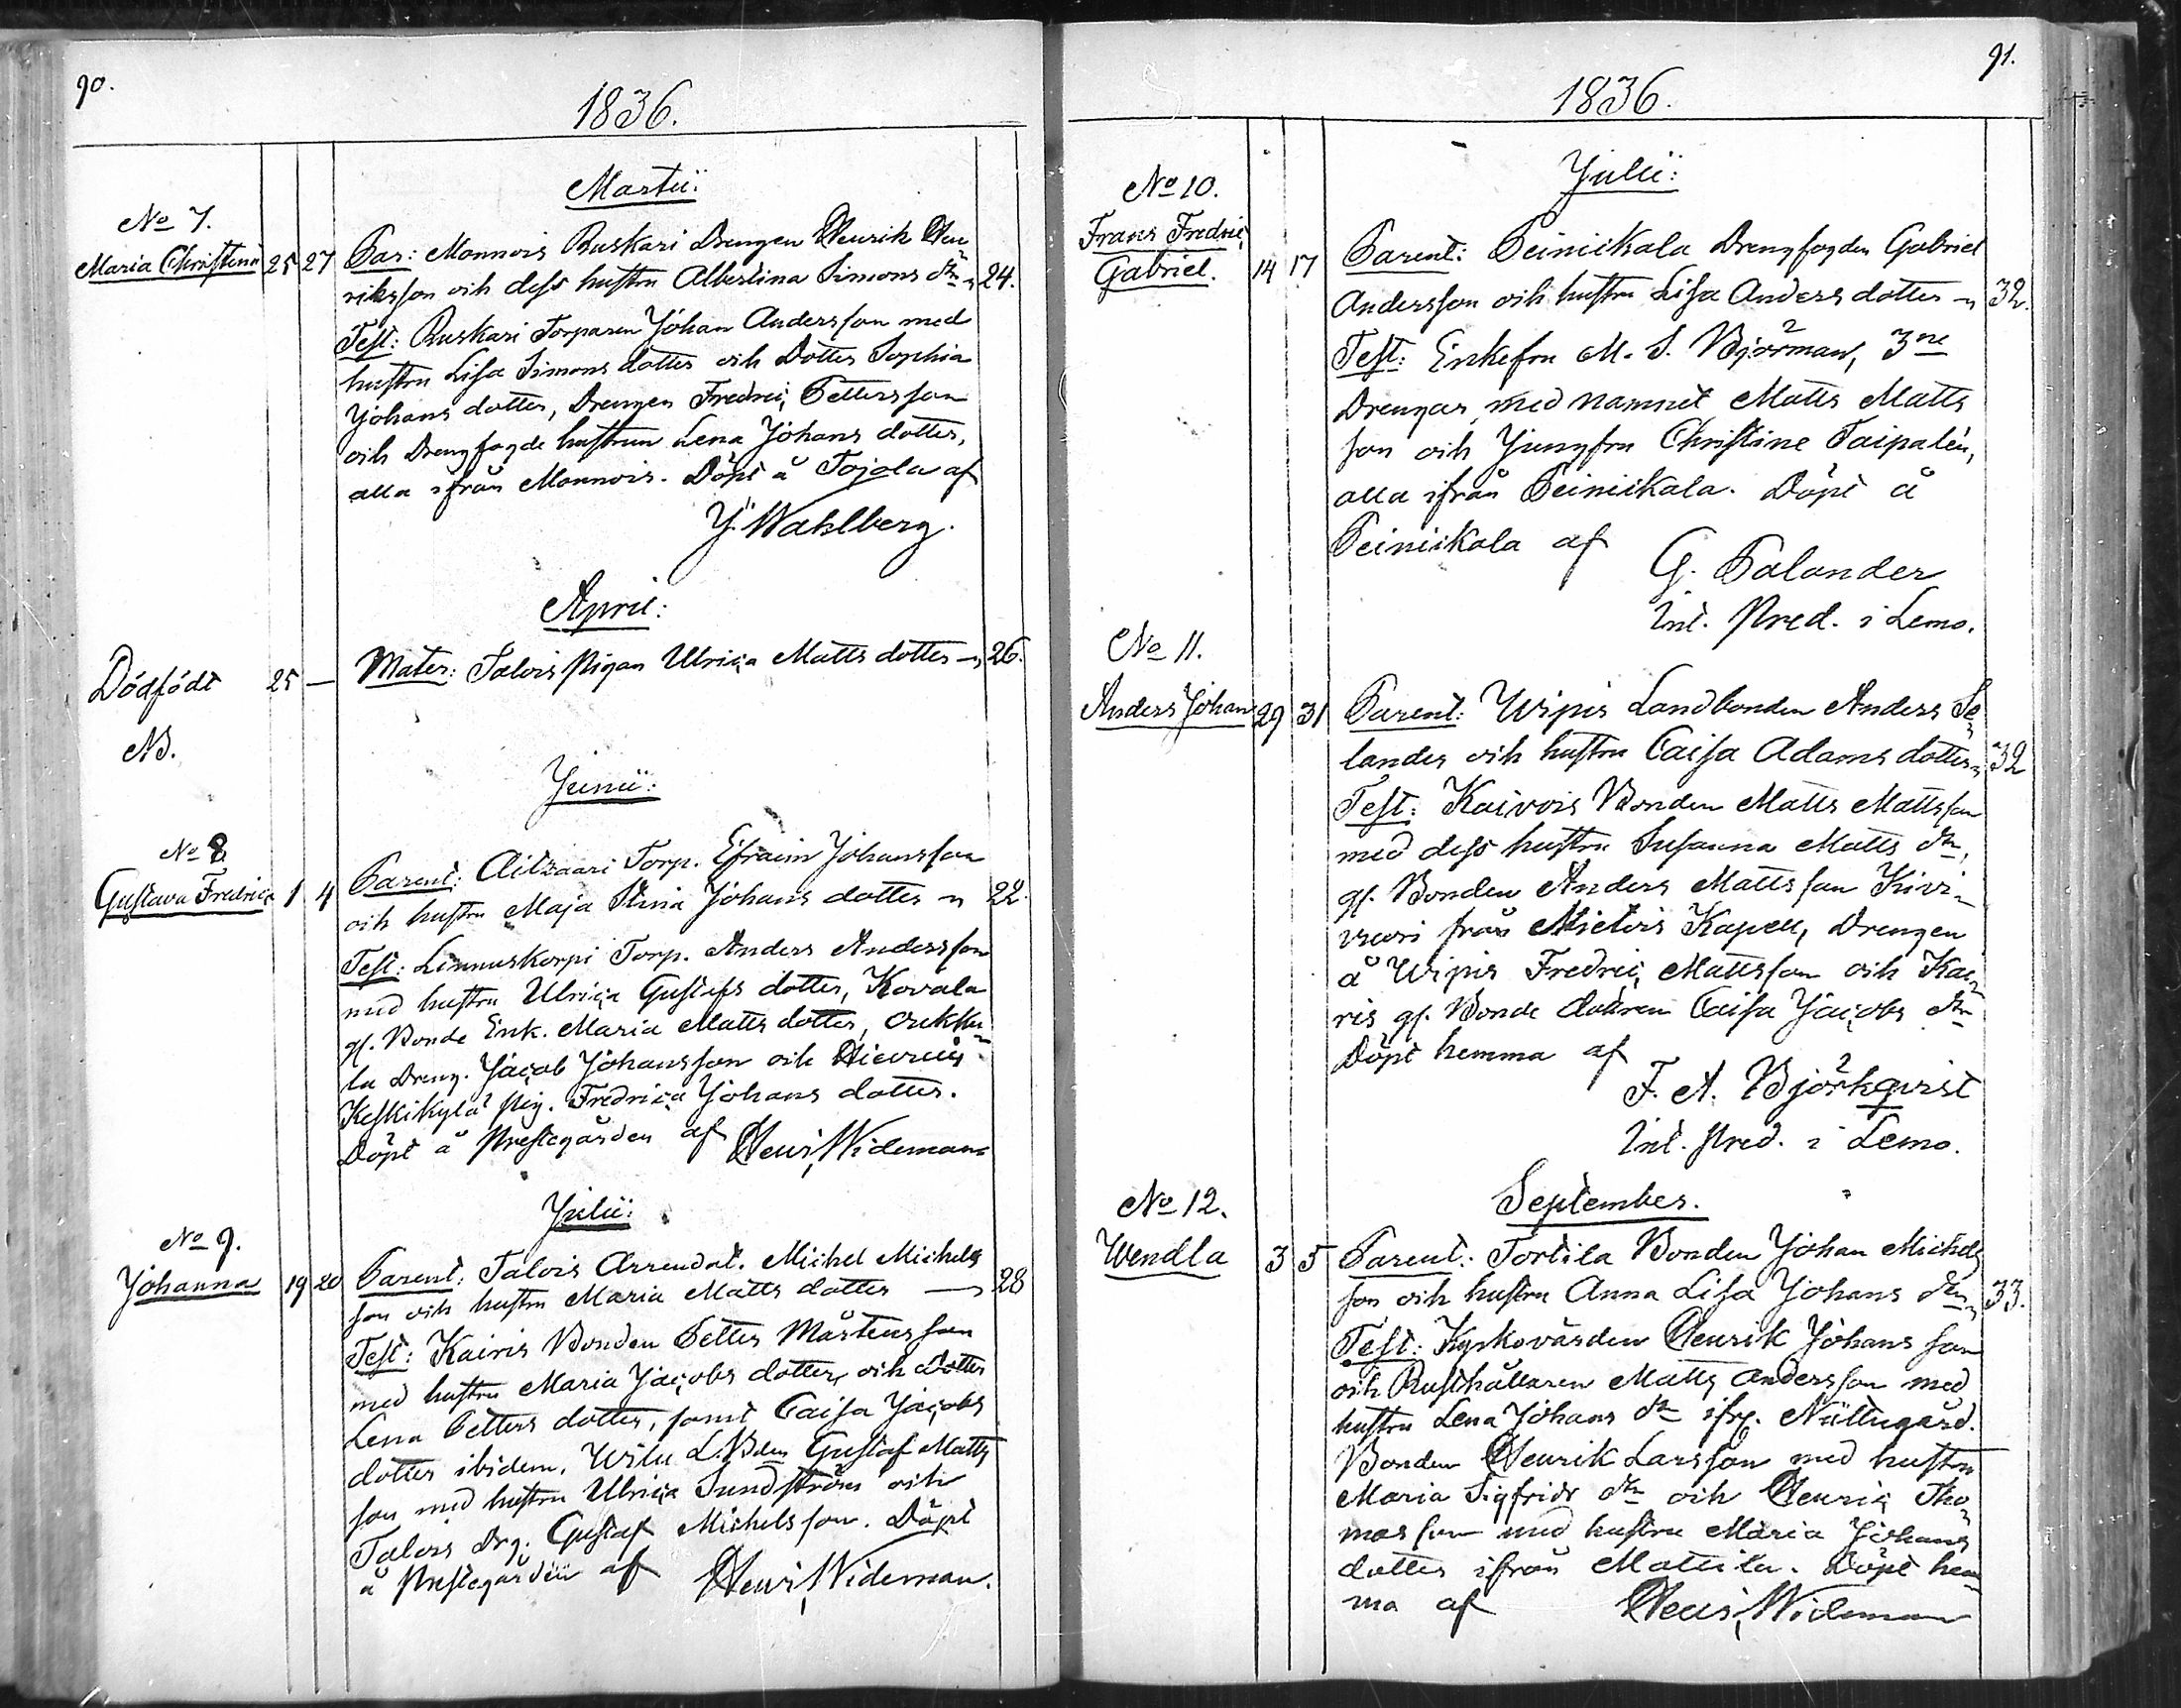 90.
1836.
Martii:
No 7.
Maria Christina 25 27 Par: Monnois Ruskari Drengen Henrik Hen
riksson och dess hustru Albertina Simons dtr 24.
Test: Ruskari Torparen Johan Andersson med
hustru Lisa Simons dotter och Dotter Sophia
Johans dotter, Drengen Fredric Pettersson
och Drengfogde hustrun Lena Johans dotter,
alla ifrån Monnois. Döpt å Tojola af
J. Wahlberg.
April:
Dödfödt 25 — Mater: Talois Pigan Ulrica Matts dotter 26.
NB.
Junii:
No 8
Gustava Fredrica 1 4 Parent: Aitzaari Torp. Efraim Johansson
och hustru Maja Stina Johans dotter 22.
Test: Linnuskorpi Torp. Anders Andersson
med hustru Ulrica Gustafs dotter, Kovala
gl. Bonde Enk. Maria Matts dotter,
la Dreng. Jacob Johansson och
Keskikylä Pig. Fredrica Johans dotter.
Döpt å Prestegården af Henr. Wideman
Julii:
No 9.
Johanna 19 20 Parent: Talois Arrendat. Michel Michels
son och hustru Maria Matts dotter — 28
Test: Kairis Bonden Petter Mårtensson
med hustru Maria Jacobs dotter, och dotter
Lena Petters dotter, samt Caisa Jacobs
dotter ibidem, Wilu L. Bden Gustaf Matts
son med hustru Ulrica Sundström och
Talois Drg. Gustaf Michelsson. Döpt
å Prestegården af Henr. Wideman.
91.
1836.
Julii:
No 10.
Frans Fredric
Gabriel. 14 17 Parent: Peinikkala Drengfogden Gabriel
Andersson och hustru Lisa Anders dotter 32.
Test: Enkefru M. S. Björman, 3ne
Drengar med namnet Matts Matts
son och Jungfru Christine Taipalén,
alla ifrån Peinikkala. Döpt å
Peinikkala af
G. Palander
Int. Pred. i Lemo.
No 11.
Anders Johan 29 31 Parent: Wipis Landbonden Anders Se
lander och hustru Caisa Adams dotter 32
Test: Kaivois Bonden Matts Mattsson
med dess hustru Susanna Matts dtr,
gl. Bonden Anders Mattsson Kivi
vuori från Mietois Kapell, Drengen
å Wipis Fredric Mattsson och Kai
ris gl. Bonde dottren Caisa Jacobs dtr
Döpt hemma af
F. A. Björkqvist
Int. Pred. i Lemo.
September.
No 12.
Wendla 3 5 Parent: Tortila Bonden Johan Michels
son och hustru Anna Lisa Johans dtr 33.
Test: Kyrkovärden Henrik Johansson
och Rusthållaren Matts Andersson med
hustru Lena Johans dtr ifr. Nälltugård.
Bonden Henrik Larsson med hustru
Maria Sigfrids dtr och Henric Tho
masson med hustru Maria Johans
dotter ifrån Mattila. Döpt hem
ma af Henr. Wideman